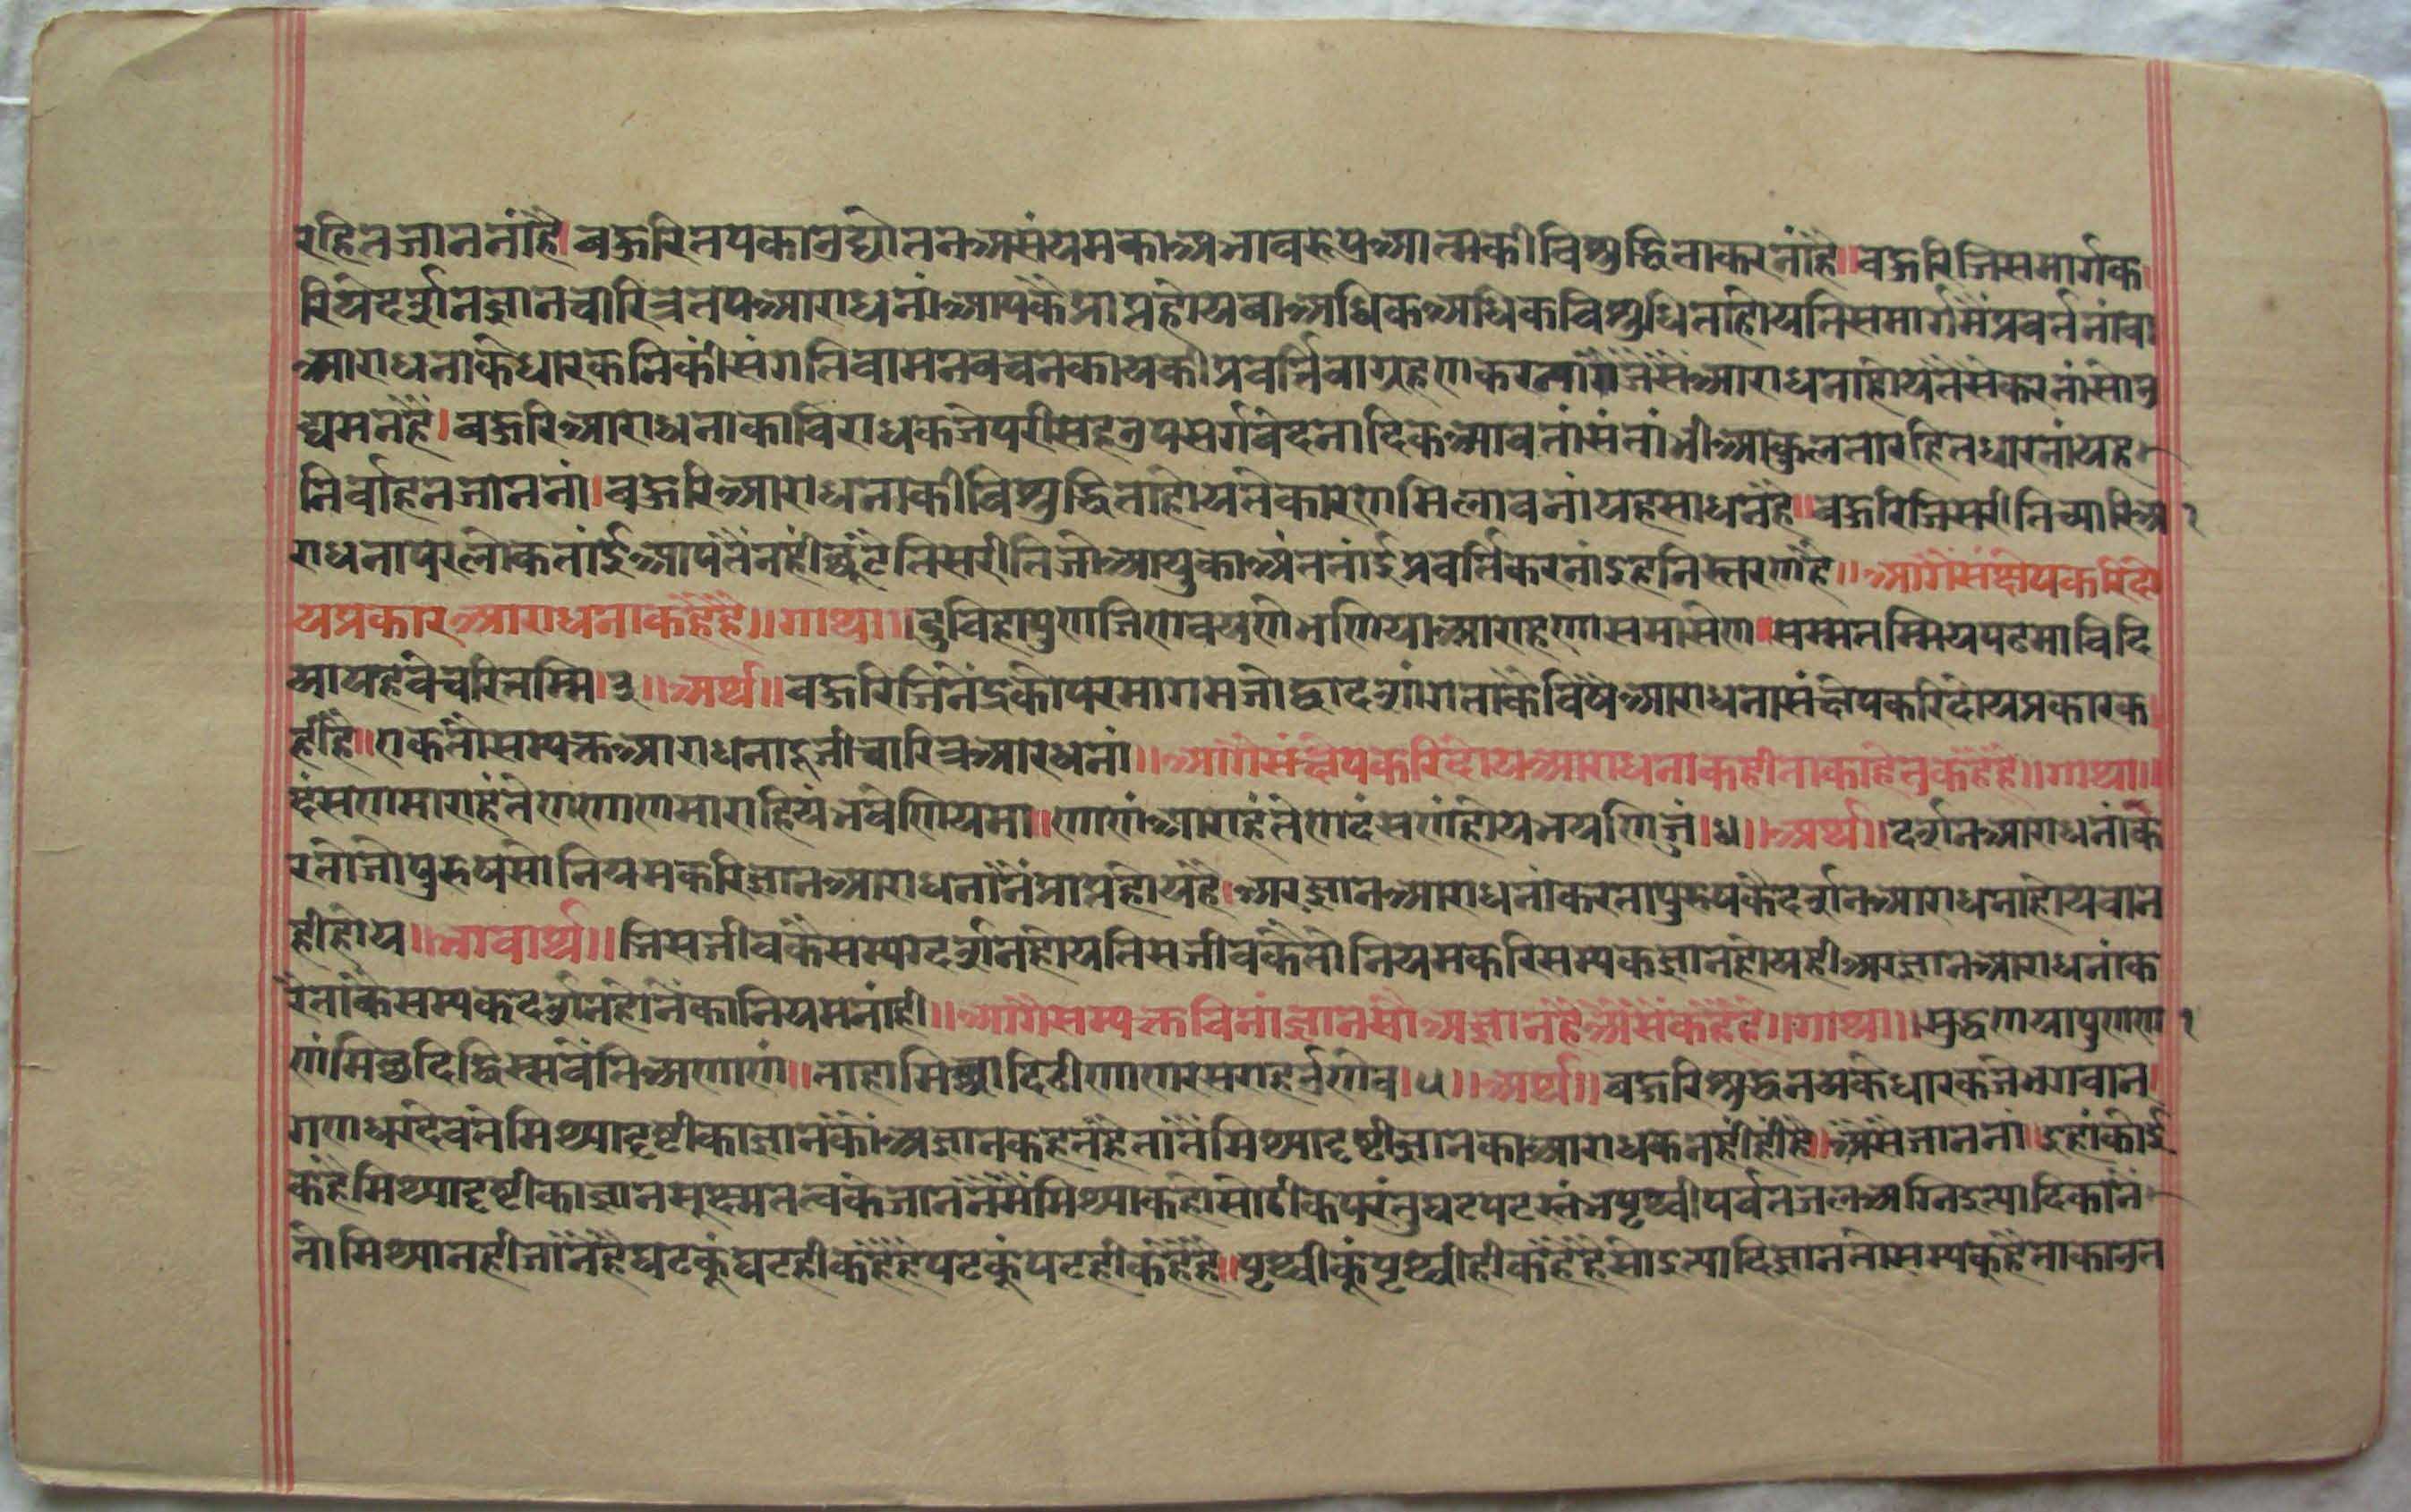 रहितजाननांहै।बहुरितपकाउद्योतनअसंयमकाअभावरूपआत्मकीविशुद्धिताकरनांहै॥बहुरिजिसमार्गक
रियेदर्शनज्ञानचारित्रतपआराधनांआपकैप्राप्तहोयवाअधिकअधिकविशुधिताहोयतिसमार्गमैंप्रवर्त्तनांवा
आराधनाकेधारकनिकीसंगतिवामनवचनकायकीप्रवर्त्तिवाग्रहणकरन्यांजैसैंआराधनाहोयतैसेकरनांसोउ
द्यमनहै।बहुरिआराधनाकाविराधकजेपरीसहउपसर्गवेदनादिकआवतांसंतांभीआकुलतारहितधारनांयह
निर्वाहनजाननां।बहुरिआराधनाकीविशुद्धिताहोयतेकारणमिलावनांयहसाधनहै॥बहुरिजिसरीतिच्यारिआ
राधनापरलोकतांईआपतैंनहींछूटैतिसरीतिजोआयुकाअंततांईप्रवर्त्तिकरनांइहनिस्तरणहै॥आगैसंक्षेपकरिदो
यप्रकारआराधनाकहैहै॥गाथा॥दुविहापुणजिणवयणेभणियाआराहणासमासेण॥सम्मतम्मियपढमाविदि
आयहवेचरितम्मि।३॥अर्थ॥बहुरिजिनेंद्रकोपरमागमजोद्वादशांगताकैविषैआराधनासंक्षेपकरिदोयप्रकारक
हीहै॥एकतोसम्यक्तआराधनादूजीचारित्रआरधनां॥आगैसंक्षेपकरिदोयआराधनाकहीताकाहेतुकहैहै॥गाथा॥
दंसणमाराहंतेणणाणमाराहियंभवेणियमा॥णाणंआराहंतेणदंसणंहोयभयणिज्जं।४॥अर्थ॥दर्शनआराधनांक
रतोजोपुरुषसोनियमकरिज्ञानआराधनांनैप्राप्तहोयहै।अरज्ञानआराधनांकरतापुरुषकैदर्शनआराधनाहोयवान
हीहोय॥भावार्थ॥जिसजीवकैसम्यग्दर्शनहोयतिसजीवकैतोनियमकरिसम्यकज्ञानहोयही।अरज्ञानआराधनांक
रतांकैसम्यक्दर्शनहोनेकानियमनांही॥आगैसम्यक्तविनांज्ञानसोअज्ञानहैअैसेंकहैहै॥गाथा॥सुद्धणयापुणणा
णंमिछदिद्धिस्सवेंतिअणाणं॥ताहामिछादिठीणाणस्सराहउणेव।५॥अर्थ॥बहुरिशुद्धनयकेधारकजेभगवान
गणधरदेवतेमिथ्यादृष्टीकाज्ञानकोंअज्ञानकहतहैतांतैमिथ्यादृष्टीज्ञानकाआराधकनहींहींहै॥अैसैजाननां॥इहांकोई
कहैमिथ्यादृष्टीकाज्ञानसूक्ष्मतत्वकूंजाननैमैंमिथ्याकहोसोठीकेपरंतुघटपटस्तंभपृथ्वीपर्वतजलअग्निइत्यादिकांनै
तोमिथ्यानहीजांनैहैघटकुंघटहीकहैहैपटकुंपटहीकहैहै॥पृथ्वीकुंपृथ्वीहीकहैहैसोइत्यादिज्ञानतोसम्यक्हैताकाउत